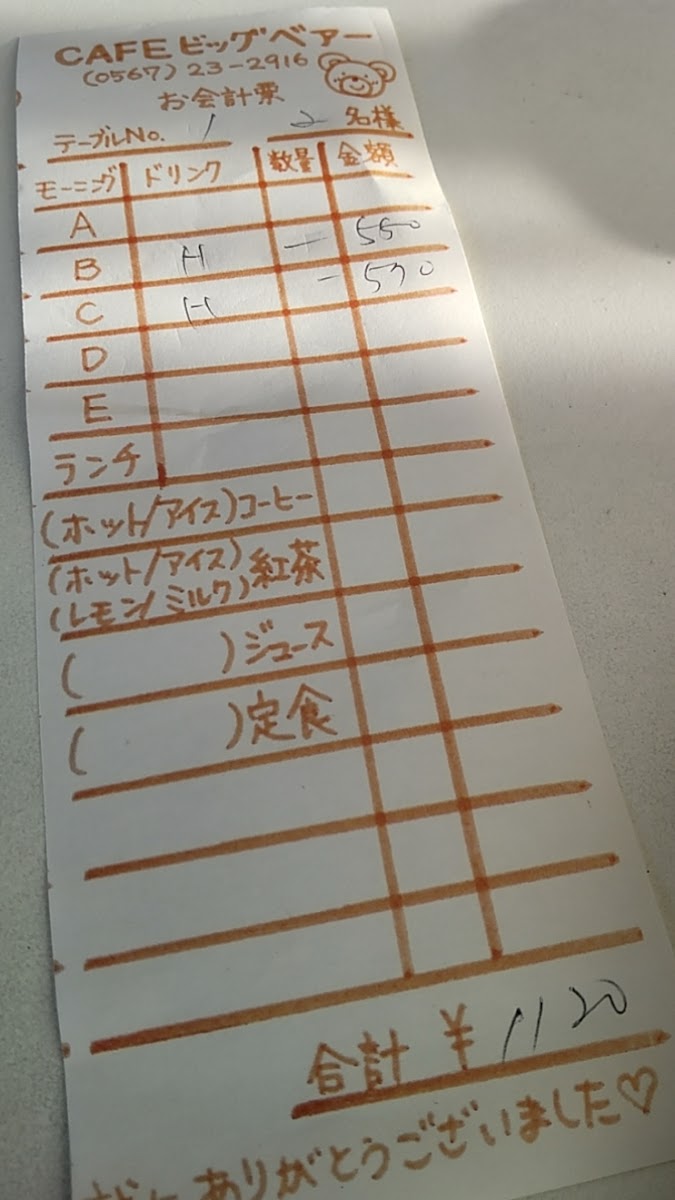 CAFEビッグベアー
(0567) 23-2916
お会計票
テーブルNo. 1 2 名様
モーニング ドリンク 数量 金額
A
B H 一 550
C H 一 570
D
E
ランチ
(ホット/アイス)コーヒー
(ホット/アイス)紅茶
(レモン/ミルク)
( )ジュース
( )定食
合計 ¥ 1120
ありがとうございました♡